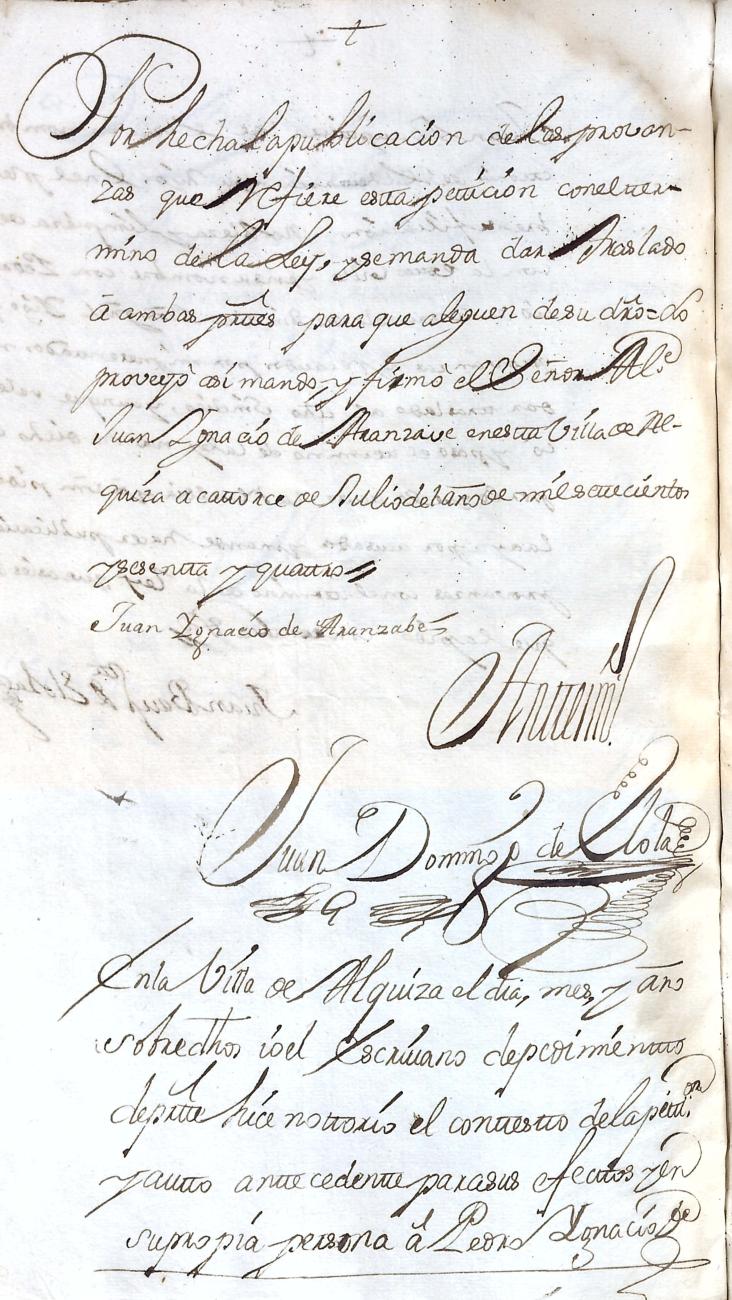 Por hecha la publicacion de las provan-
zas que refiere esta peticion con el ter-
mino de la Ley, y se manda dar traslado
â ambas prttes para que aleguen de su dro = lo
proveyó asi mandó, y firmó el Señor Alc.e
Juan Ygnacio de Aranzave en esta Villa de Al-
quiza a catorce de Julio del año de mil settecientos
y sesentta y quattro =
Juan Ygnacio de Aranzabe
Antte mi
Juan Domingo de
En la Villa de Alquiza el dia, mes, y año
sobredhos io el Escrivano de pedimentto
de prtte hice nottorio el contestto de la petti.on
y autto anttecedentte para sus efecttos y en
su propia persona â Pedro Ygnacio de